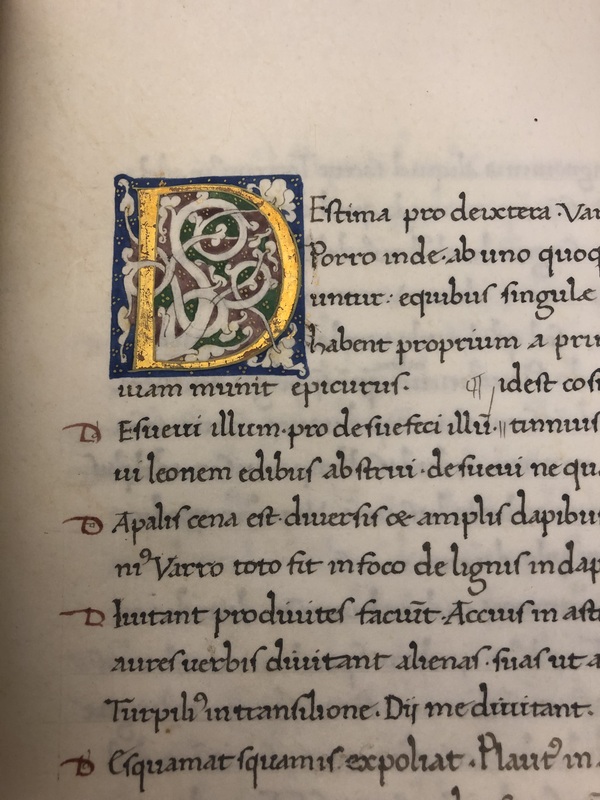 DEstima pro deixtera · Var
Porro inde · ab uno quoq
untur : equibus singule
habent proprium a pri
uiam munit epicurus. ¶ idest cos
DEsueui illum · pro desuefeci illū · tinnius
ui leonem edibus abstrui · desueui ne qu
DApalis cena est · diuersis & amplis dapibu
niꝰ Varro toto fit infoco de lignis indap
DIuitant prodiuites faciūt · Accius in ast
aures uerbis diuitant alienas · suas ut a
Turpiliꝰ intransilione . Dij me diuitant.
DEsquamat squamis expoliat . Plautꝰ in